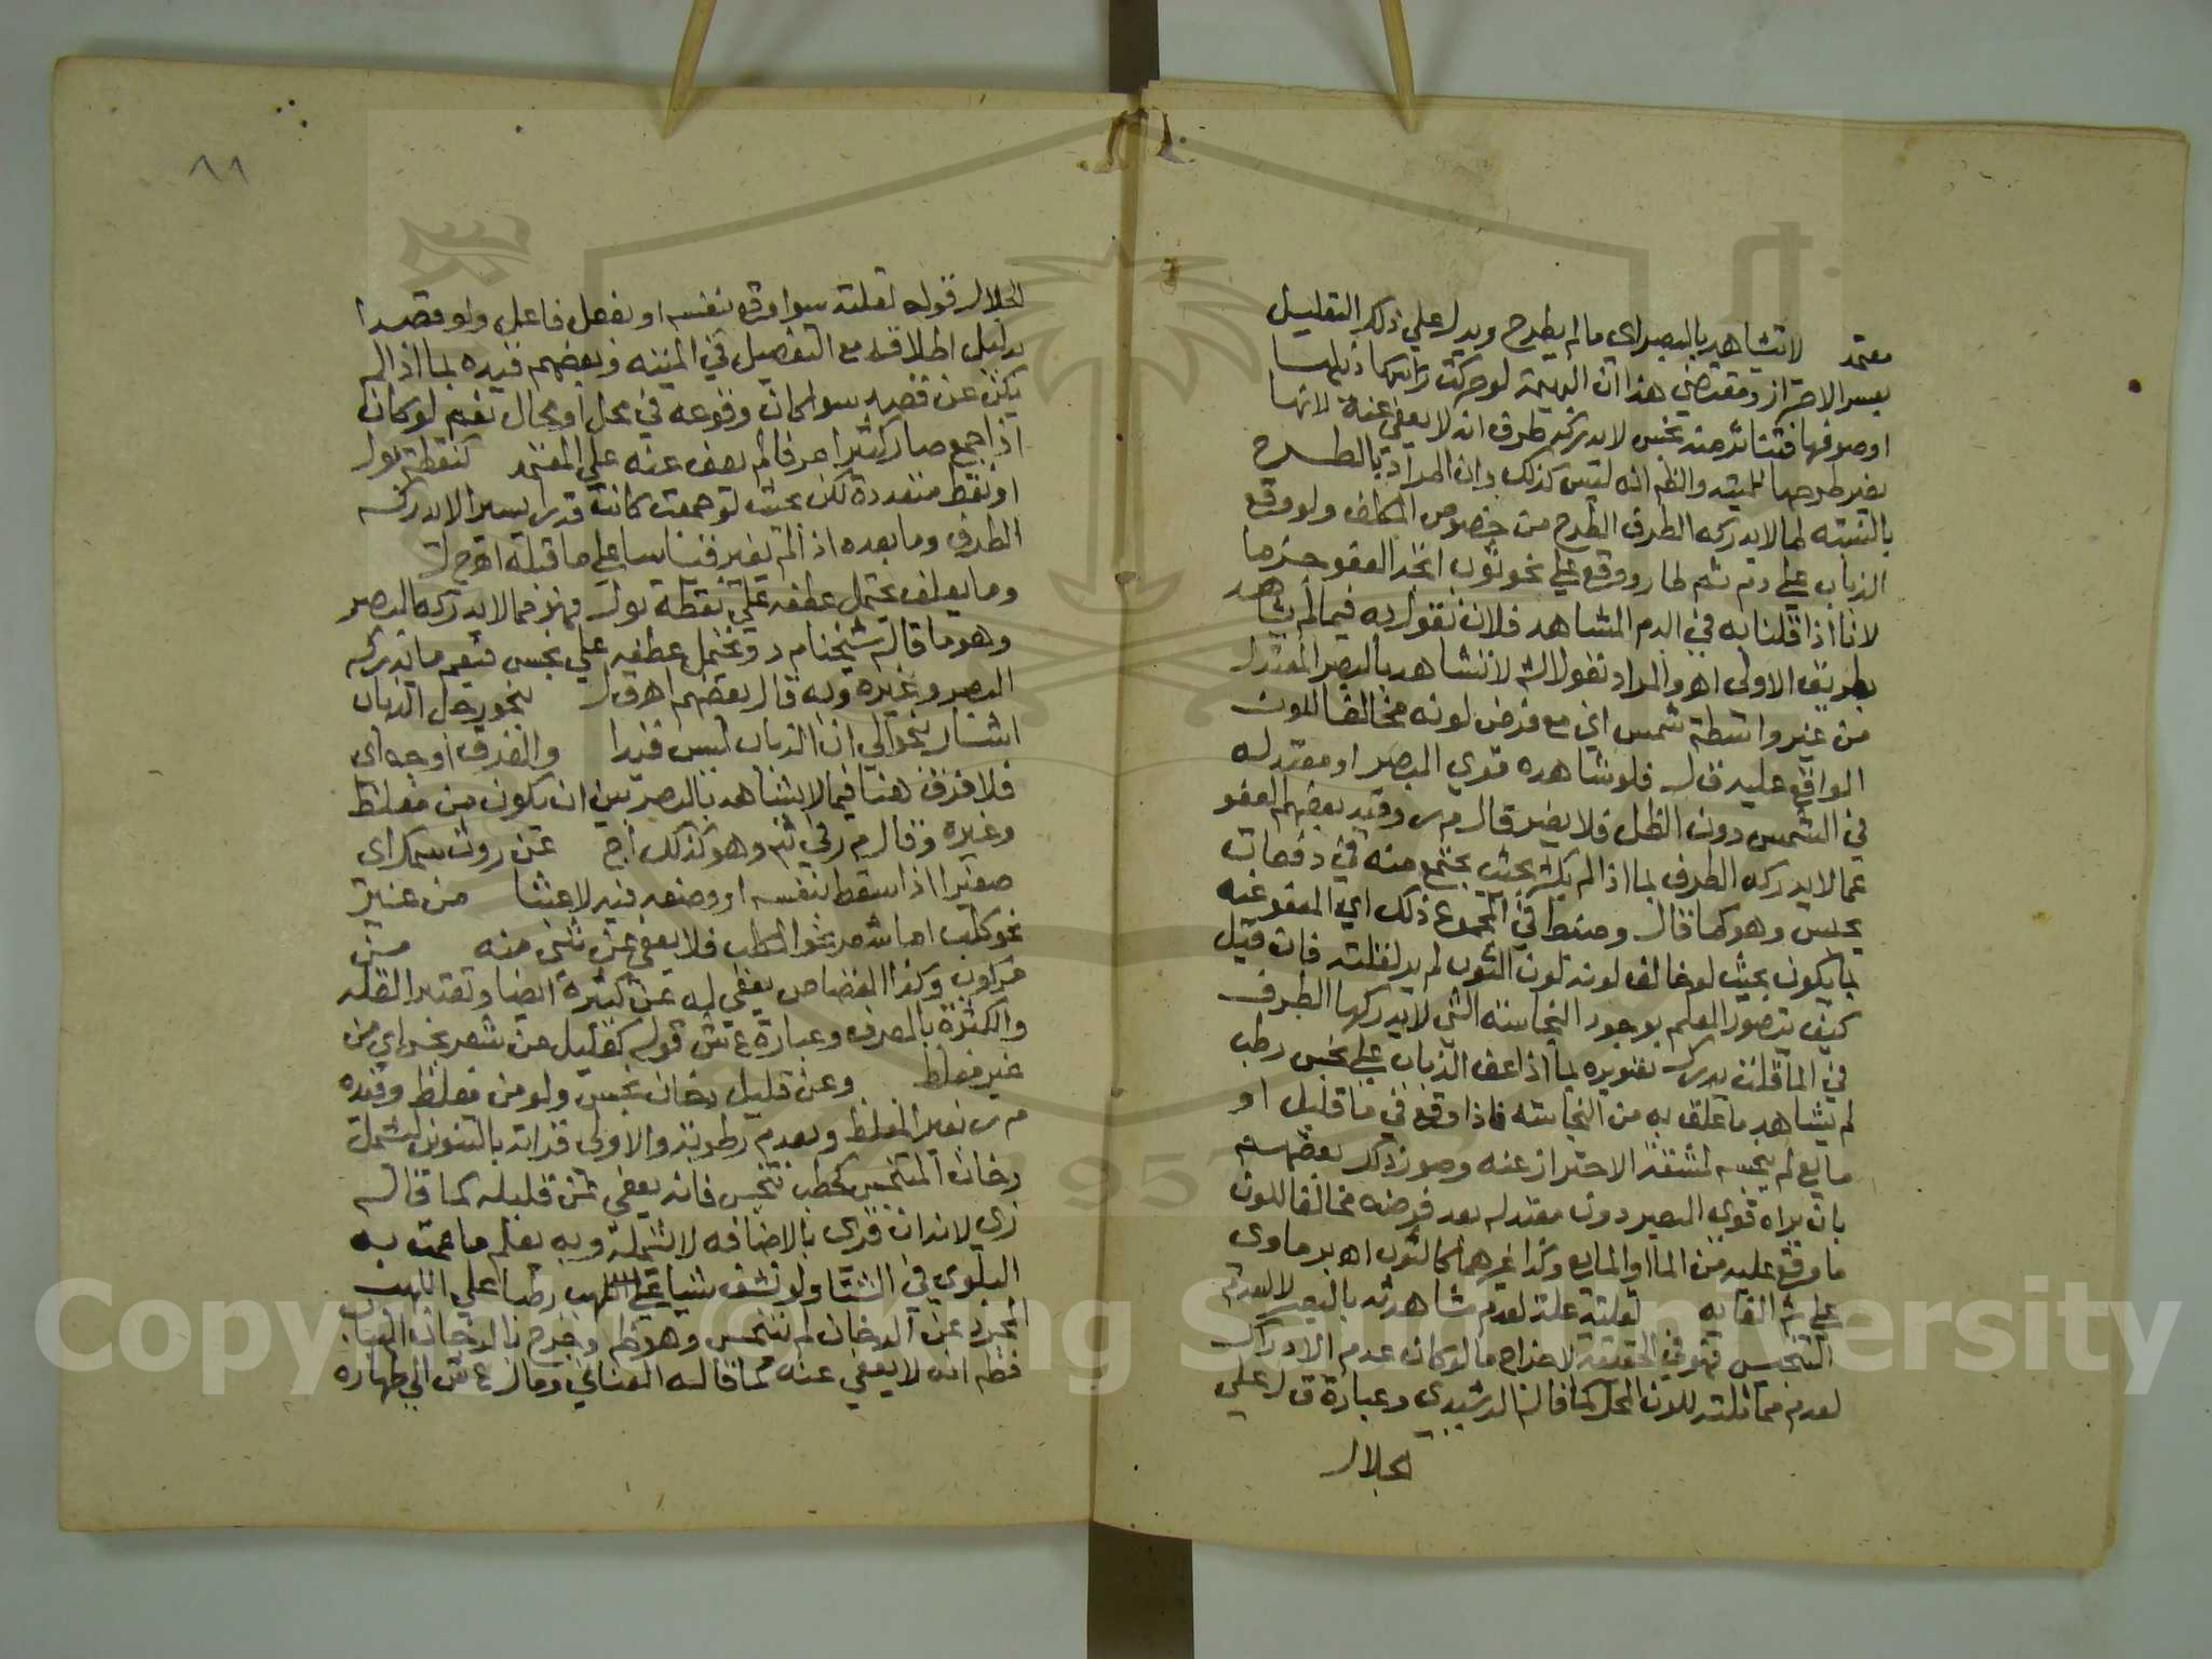 معتمد لا تشاهد بالبصر اي ما لم يطرح ويدل علي ذلك التعليل
بعسر الاحتراز ومقتضي هذا ان البهيمة لو حركت راسها ذيلها
او صوفها فتناثر منه نجس لا يدركه طرف انه لا يعفي عنه لانها
بغير طرحها للميتة والظم انه ليس كذلك وان المراد بالطرح
بالنسبة لما لا يدركه الطرف الطرح من خصوص المكلف ولو وقع
الذباب علي دم ثم طار ووقع علي نحو ثوب اتجه العفو جزما
لانا اذا قلنا به في الدم المشاهد فلان نقول به فيما لم يشاهد
بطريق الاولي اهـ والمراد بقوله لا تشاهد بالبصر المعتدل
من غير واسطة شمس اي مع فرض لونه مخالفا للون
الواقع عليه ق ل فلو شاهده قوي البصر او معتدله
في الشمس دون الظل فلا يضر قال م ر وقيد بعضهم العفو
عما لا يدركه الطرف بما اذا لم يكثر بحيث يجتمع منه في دفعات
يحس وهو كما قال وضبط في المجموع ذلك اي المعفو عنه
بما يكون بحيث لو خالف لونه لون الثوب لم ير لقلته فان قيل
كيف يتصور العلم بوجود النجاسة التي لا يدركها الطرف
في الما قلت يدرك تصويره بما اذا عف الذباب علي نجس رطب
لم يشاهد ما علق به من النجاسة فاذا وقع في ما قليل او
مايع لم ينجسه لمشقة الاحتراز عنه وصور ذلك بعضهم
بان يراه قوي البصر دون معتدله بعد فرضه مخالفا للون
ما وقع عليه من الما او المايع وكذا غيرهما كالثوب اهـ برماوي
علي شم الغاية لقلته علة لعدم مشاهدته بالبصر لا لعدم
التنجيس فهو في الحقيقة لاخراج ما لو كان عدم الادراك
لعدم مماثلته للون المحل كما قاله الرشيدي وعبارة ق ل علي
الجلال
٨٨
الجلال قوله لقلته سوا وقع بنفسه او بفعل فاعل ولو قصدا
بدليل اطلاقه مع التفصيل في الميتة وبعضهم قيده بما اذا لم
يكن عن قصد سوا كان وقوعه في محل او محال نعم لو كان
اذا جمع صار كثيرا عرفا لم يعف عنه علي المعتمد كنقطة بول
او نقط متعددة لكن بحيث لو جمعت كانت قدرا يسيرا لا يدركه
الطرف وما بعده اذا لم يغير قياسا علي ما قبله اهـ ح ل
وما يعلف يحتمل عطفه علي نقطة بول فهو مما لا يدركه البصر
وهو ما قاله شيخنا م د ويحتمل عطفه علي نجس فيعم ما يدركه
البصر وغيره وبه قال بعضهم اهـ ق ل بنحو رجل الذباب
اشار بنحو الي ان الذباب ليس قيدا والفرق اوجه اي
فلا فرق هنا فيما لا يشاهد بالبصر بين ان يكون من مغلظ
وغيره وقال م ر في شم وهو كذلك ا ج عن روث سمك اي
صغيرا اذا سقط بنفسه او وضعه فيه لا عبثا من غير
نحو كلب اما شعر نحو الكلب فلا يعفي عن شي منه من
مركوب وكذا القصاص يعفي له عن كثيره ايضا وتعتبر القلة
والكثرة بالعرف وعبارة ع ش قوله كقليل من شعر نجس اي من
غير مغلظ وعن قليل دخان نجس ولو من مغلظ وقيده
م ر بغير المغلظ وبعدم رطوبة والاولي قراته بالتنوين ليشمل
دخان المتنجس كحطب تنجس فانه يعفي عن قليله كما قاله
زي لانه ان قري بالاضافه لا يشمله وبه يعلم ما عمت به
البلوي في الشتا ولو نشف شيا علي اللهب رطبا علي اللهب
المجرد عن الدخان لم يتنجس وهو ظم وخرج بالدخان النبات
فظم انه لا يعفي عنه كما قاله العناني وقال ع ش الي طهارة